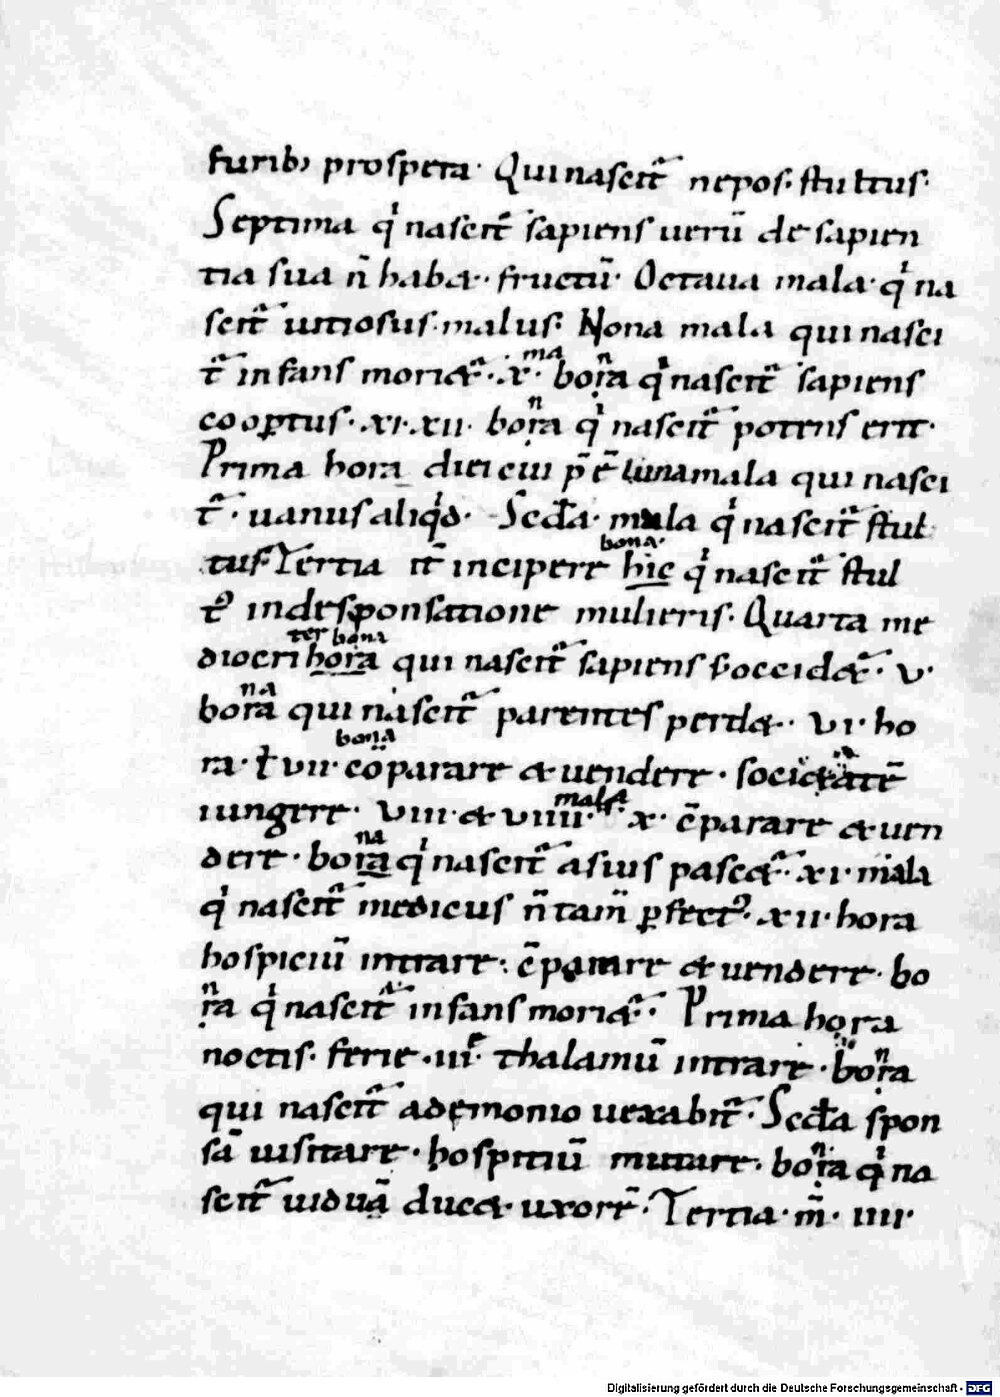 furib; prospera· Qui nascit᷑ nepos· stultus·
Septima qͥ nascit᷑ sapiens uerū de sapien
tia sua n̄ habet· fructū· Octaua mala· qͥ na
scit᷑ uitiosus· malus· Nona mala qui nasci
t᷑ infans moriet᷑· x·ma bona qͥ nascit᷑ sapiens
cooꝑtus· xi· xii· bona qͥ nascit᷑ potens erit·
Prima hora diei cui p̄ ē luna mala qui nasci
t᷑· uanus aliqͥd· Scda· mala qͥ nascit᷑ stul
bona·
tus· Tertia it̄ incipere hic qͥ nascit᷑ stul
t᷒ in desponsatione mulieris· Quarta me
ter bona
diocri hora qui nascit᷑ sapiens s· occidet᷑· v·
bona qui nascit᷑ parentes perdet· vi· ho
bona
ra· ł vii· cōparare et uendere· societatē
mala
iungere· viii· et viiii· x· c̄parare et uen
dere· bona qͥ nascit᷑ asius pascet᷑· xi· mala
qͥ nascit᷑ medicus n̄ tam̄ ꝑfect᷒· xii· hora
hospiciū intrare· c̄parare et uendere· bo
na qͥ nascit᷑ infans moriet᷑· Prima hora
noctis· ferie· iii· thalamū intrare· bona
qui nascit᷑ ademonio uexabit᷑· Scda spon
sā uisitare· hospitiū mutare· bona qͥ na
scit᷑ uiduā ducet uxorē· Tertia· m̄· iiii·
Digitalisierung gefördert durch die Deutsche Forschungsgemeinschaft - DFG